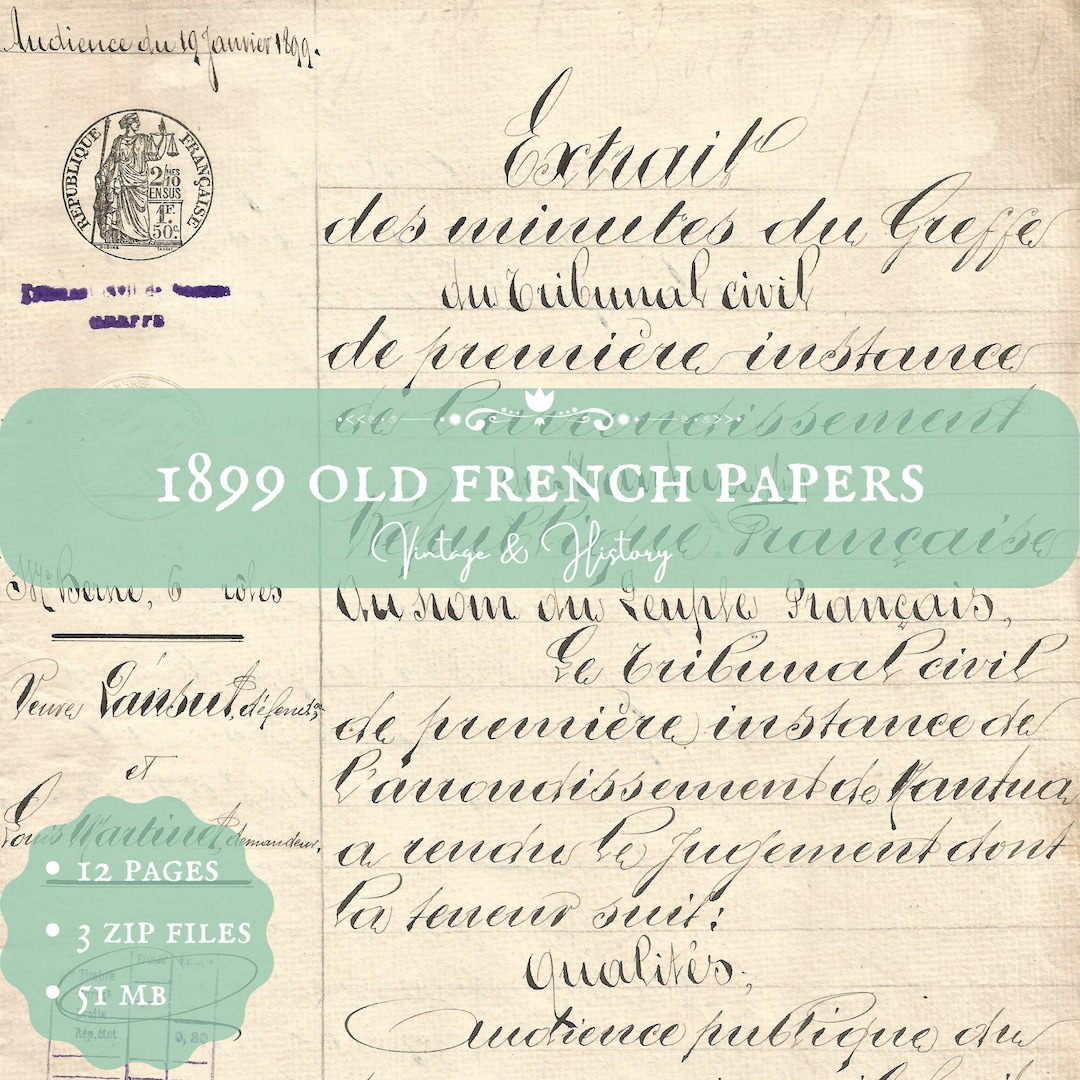 Audience du 19 Janvier 1899.
RÉPUBLIQUE FRANÇAISE
2/10 MES
EN SUS
1F.
50c.
GREFFE
Extrait
des minutes du Greffe
du Tribunal civil
de première instance
de l'arrondissement
République Française
1899 OLD FRENCH PAPERS
Vintage & History
Me Berne, 6 rôles
Veuve
et
Louis Martinet, demandeur.
Au nom du Peuple Français,
Le Tribunal civil
de première instance de
l'arrondissement de Nantua
a rendu le Jugement dont
la teneur suit:
Qualités;
Audience publique du
• 12 PAGES
• 3 ZIP FILES
• 51 MB
Timbre
Droits
Rép. état
0,20